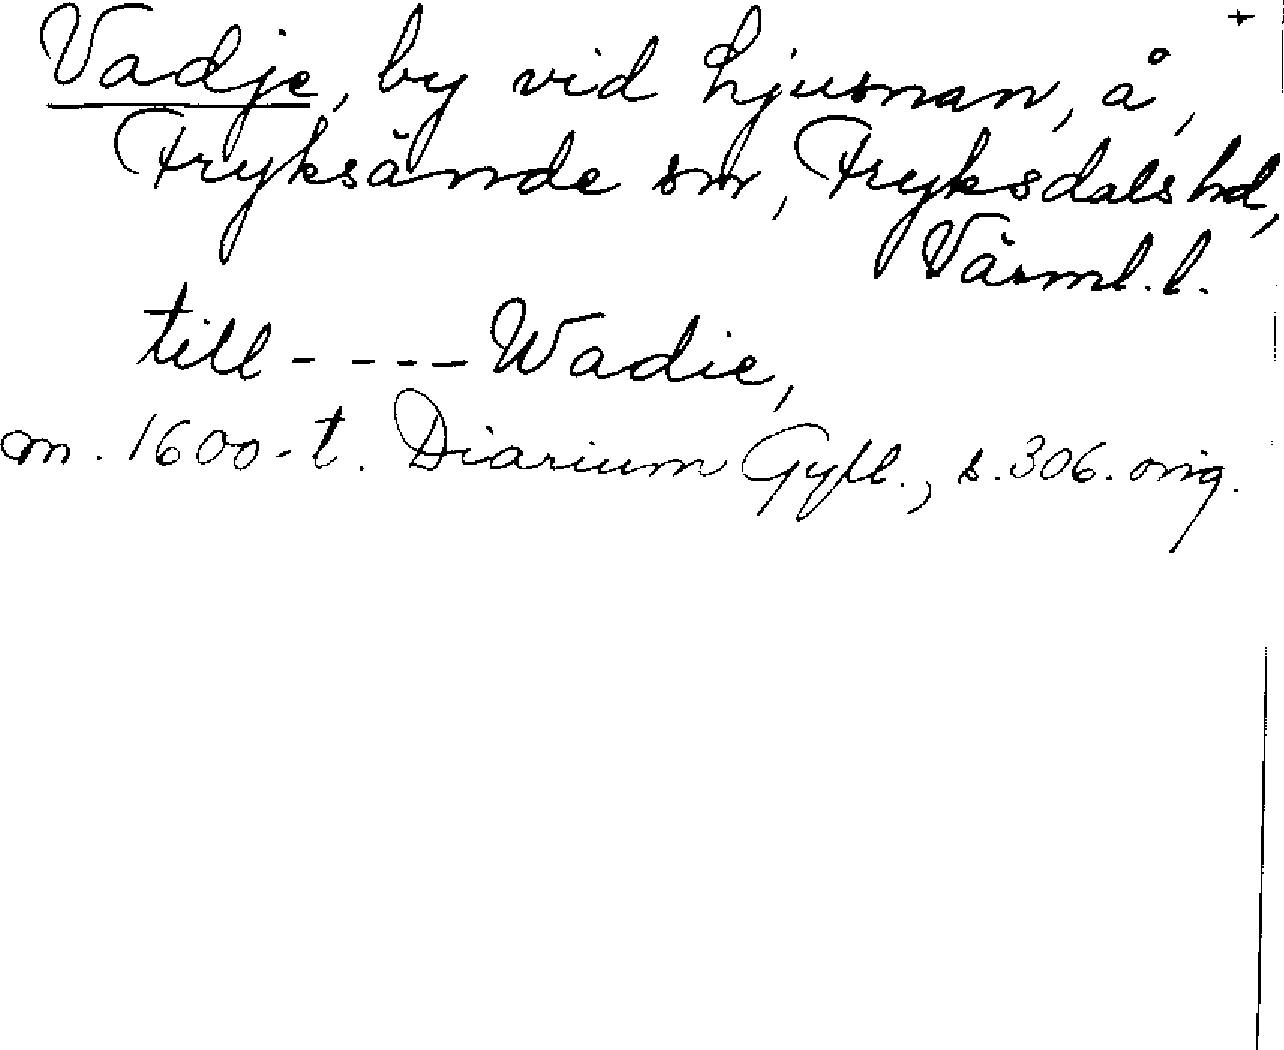 +
Vadje, by vid Ljusnan, å,
Fryksände sn, Fryksdals hd,
Värml. l.
till - - - - Wadie,
m. 1600-t. Diarium Gyll., s. 306. orig.